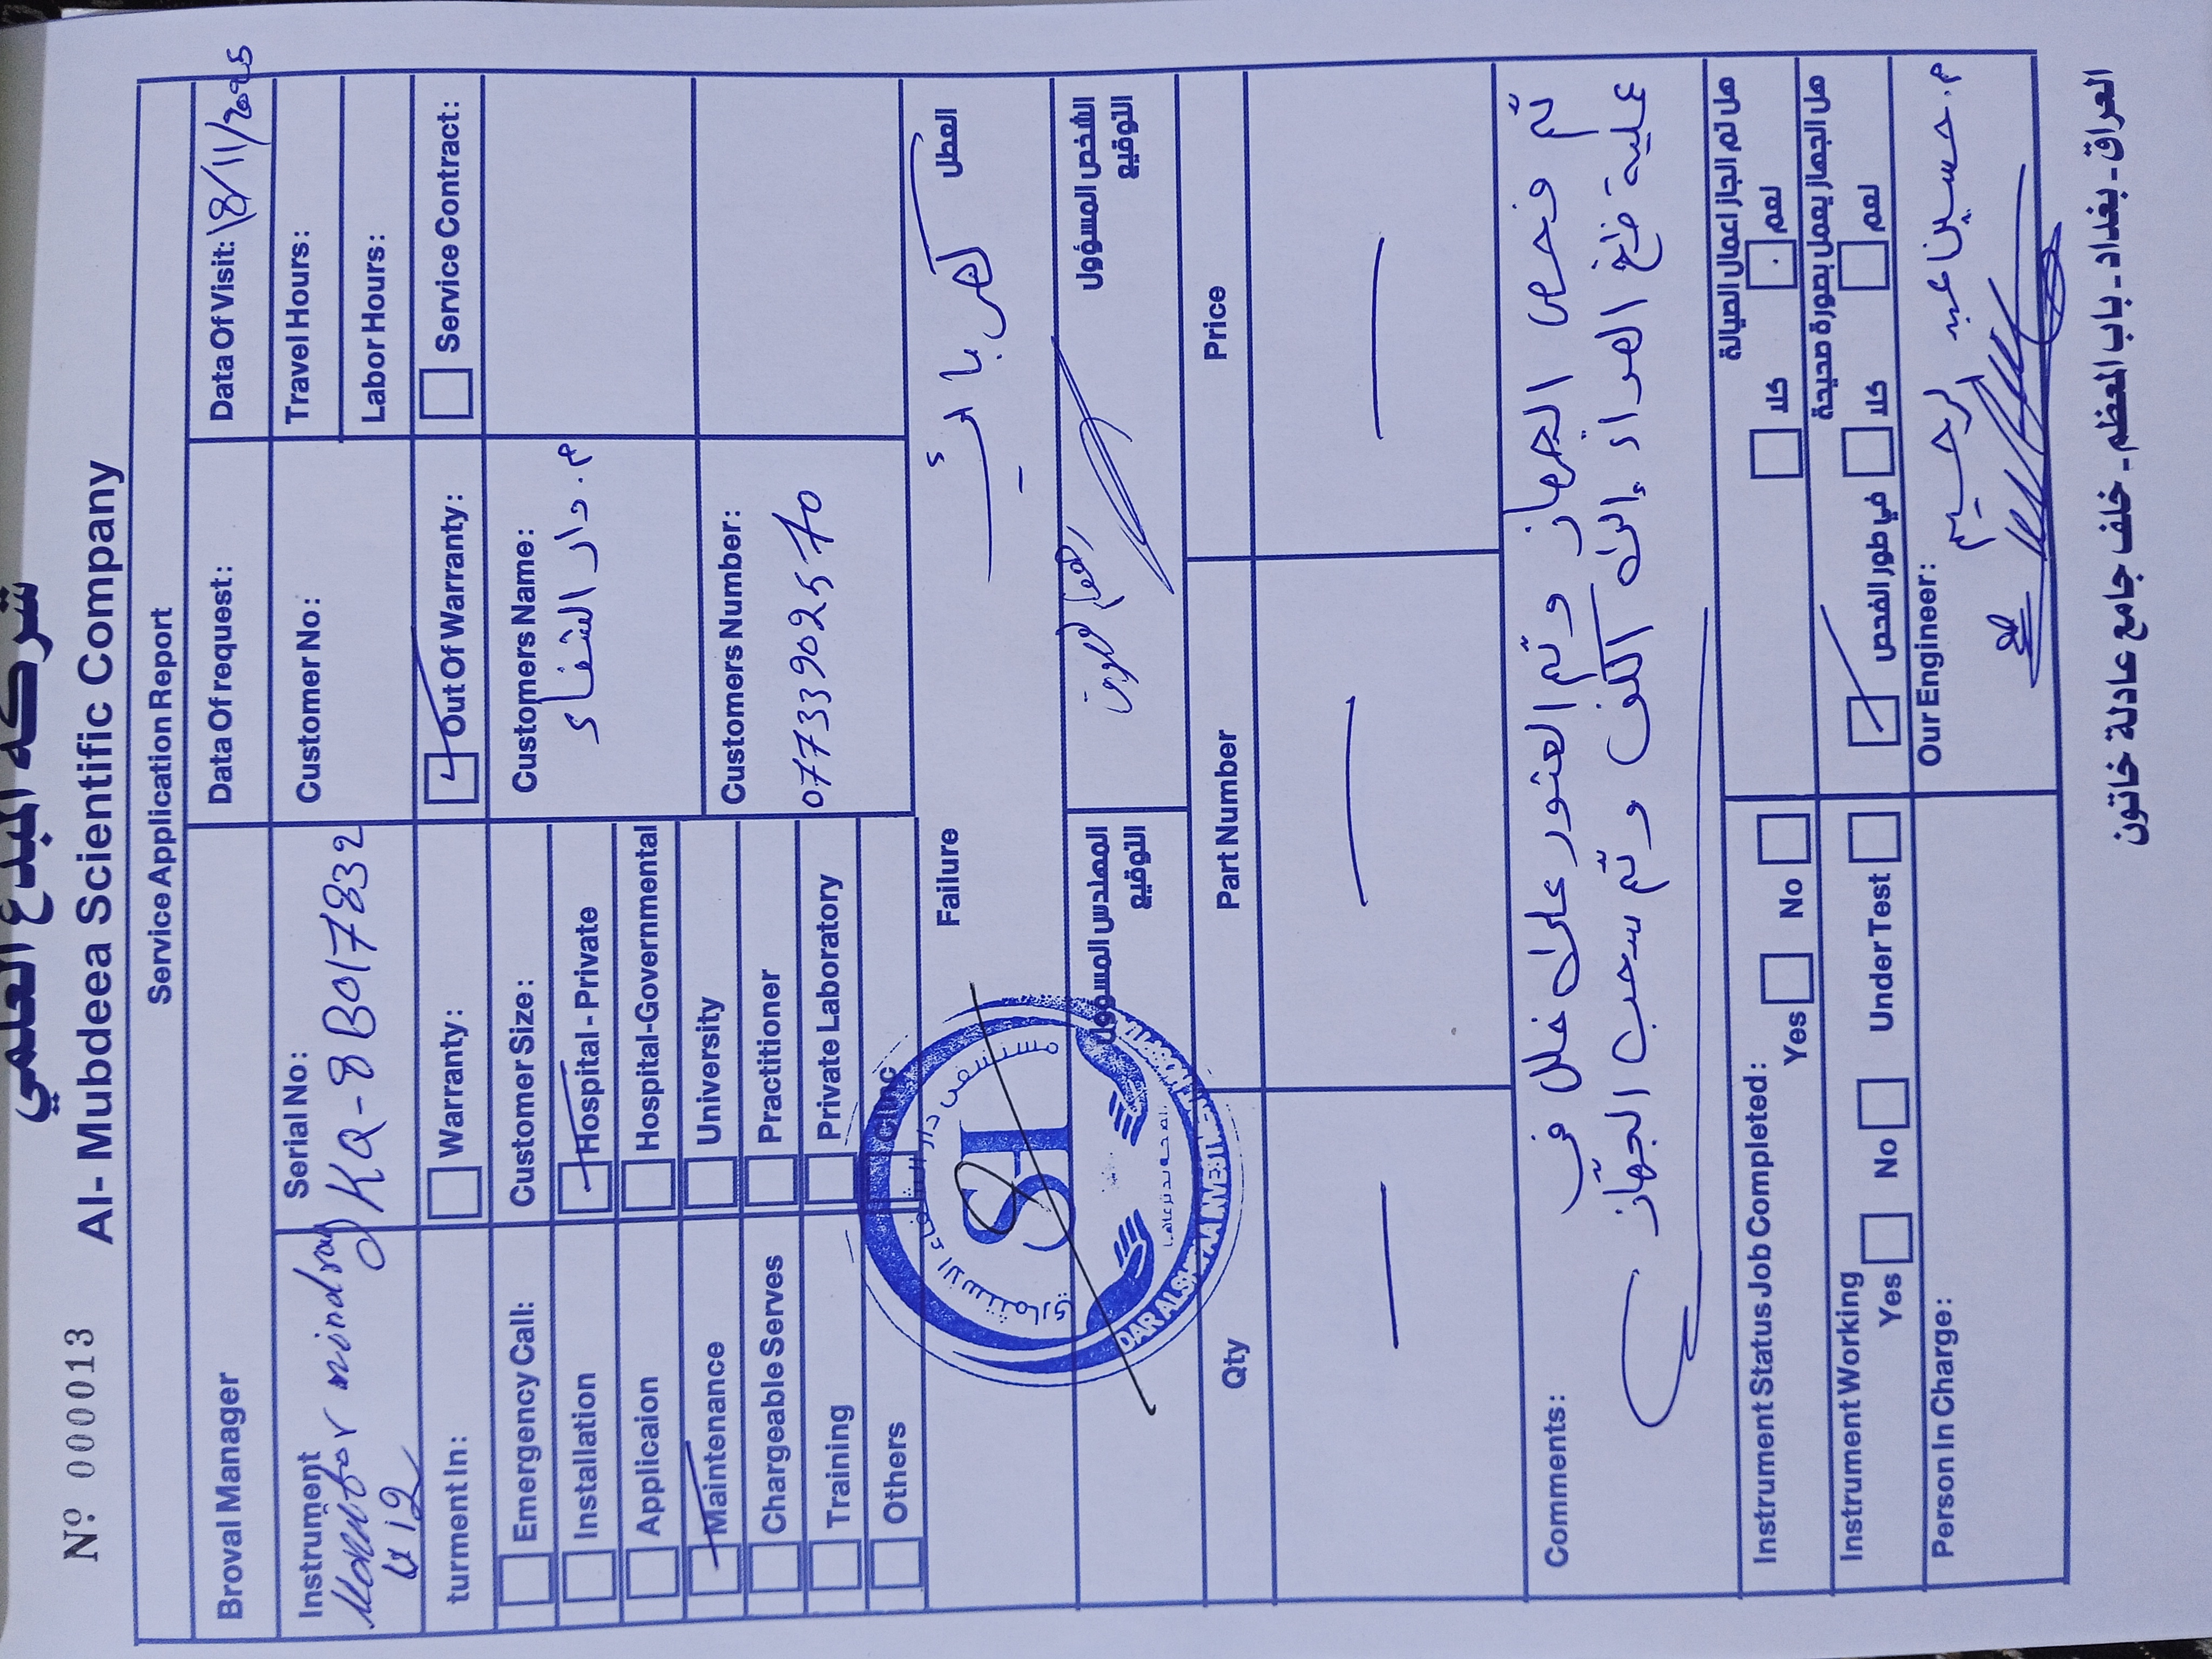 شركة المبدع العلمي
Nº 000013
Al- Mubdeea Scientific Company
Service Application Report
Broval Manager
Data Of request:
Data Of Visit: 18/11/2025
Instrument
Monitor mindray
Serial No:
KQ-8B017832
Customer No:
Travel Hours:
Labor Hours:
turment In:
Warranty:
Out Of Warranty:
Service Contract:
Emergency Call:
Installation
Applicaion
Maintenance
Chargeable Serves
Training
Others
Customer Size:
Hospital - Private
Hospital-Governmental
University
Practitioner
Private Laboratory
Clinic
Customers Name:
م. دار الشفاء
Customers Number:
07733902570
Failure
العطل
المهندس المسؤول
التوقيع
الشخص المسؤول
التوقيع
مستشفى دار الشفاء الاستثماري
SH
DAR ALSHIFAA INVESTMENT HOSPITAL
Qty
Part Number
Price
Comments:
تم فحص الجهاز وتم العثور على خلل في
عملية ضخ الهواء إلى الكف وتم سحب الجهاز
Instrument Status Job Completed:
Yes
No
هل تم انجاز اعمال الصيانة
كلا
نعم
Instrument Working
Yes
No
Under Test
هل الجهاز يعمل بصورة صحيحة
في طور الفحص
كلا
نعم
Person In Charge:
Our Engineer:
م. حسين عبد الرحيم
العراق - بغداد - باب المعظم - خلف جامع عادلة خاتون